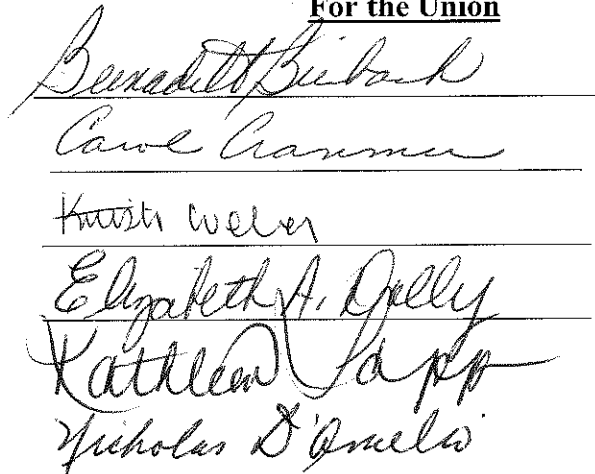 For the Union
Bernadette
Carol Cranmer
Kristi Weber
Elizabeth A. Dolly
Kathleen Sapp
Nicholas D'Amelio